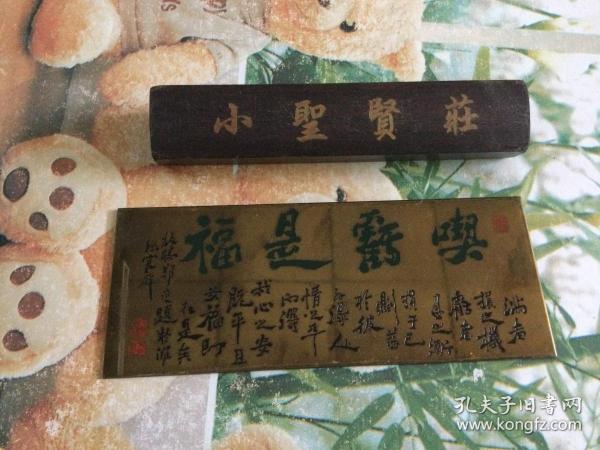 小聖賢莊
喫虧是福
滿者
損之機
虧者
盈之漸
損于己
則益
於彼
外得人
情之平
内得
我心之安
既平且
安福即
在是矣
板橋鄭燮題於濰
孔夫子旧书网
www.kongfz.com